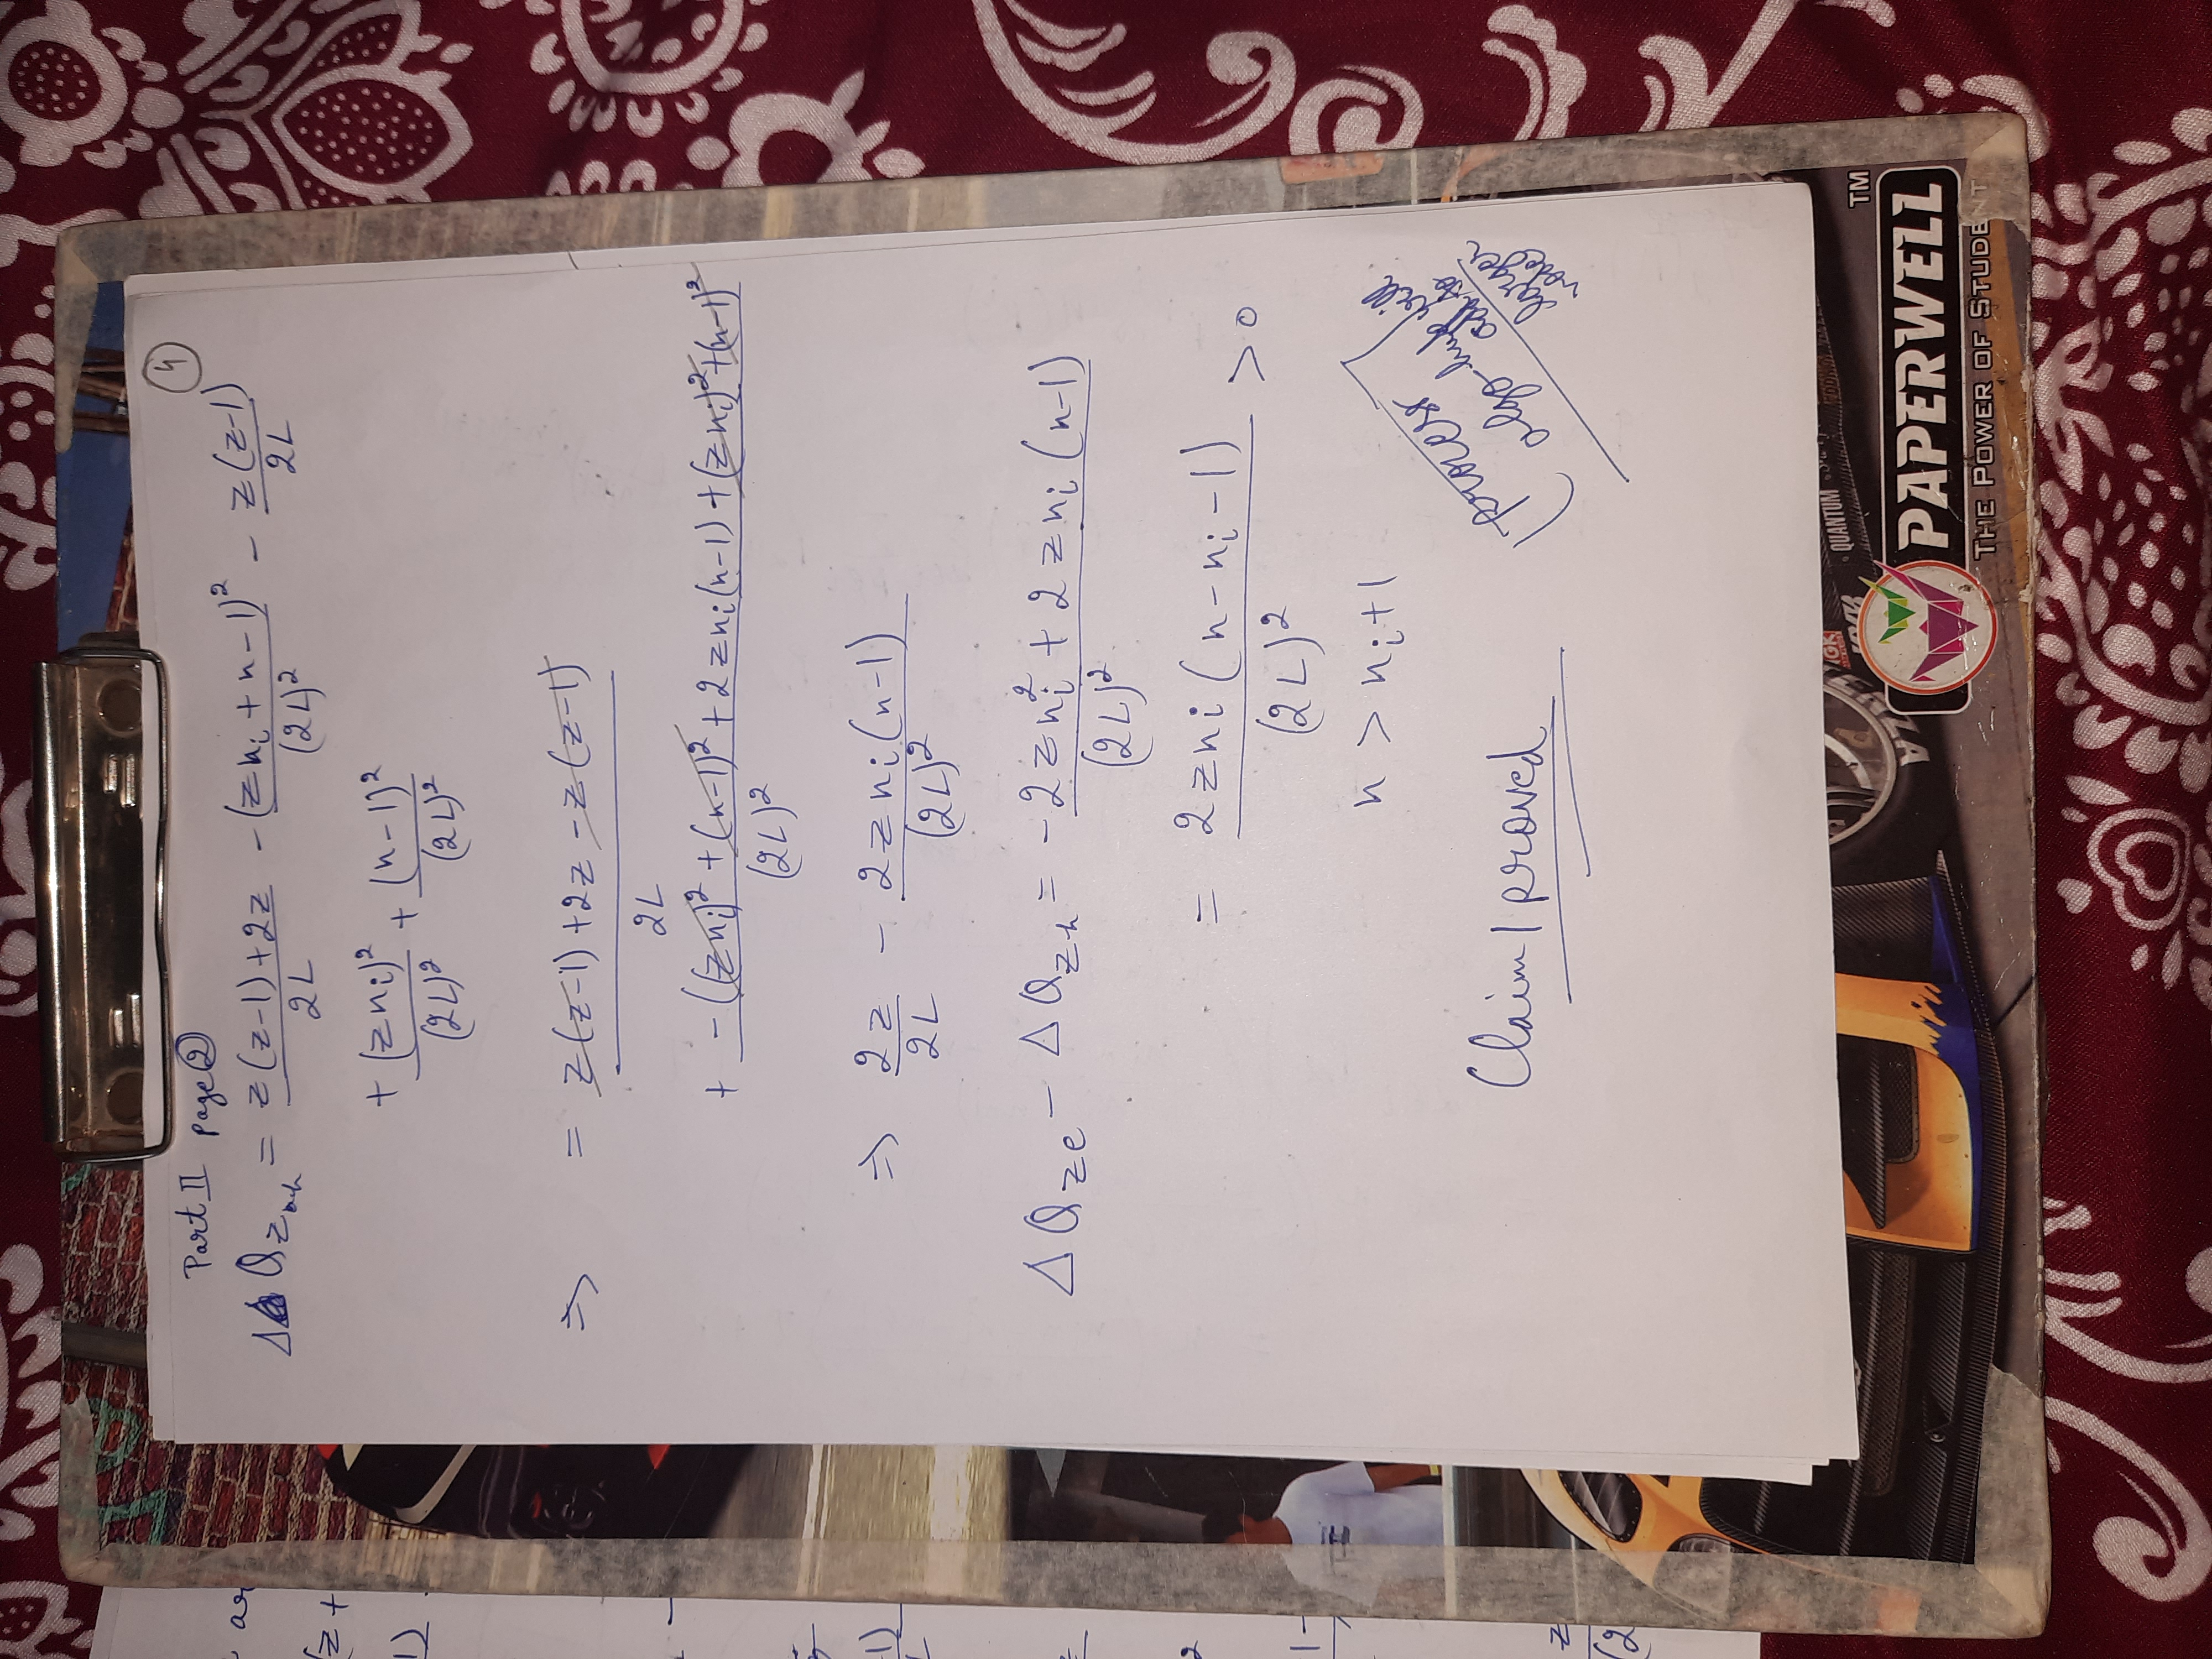 4
Part II page 2
Δ Q_z = z(z-1)+2z / 2L - (zn_i + n-1)² / (2L)² - z(z-1) / 2L
+ (zn_i)² / (2L)² + (n-1)² / (2L)²
⇒ = z(z-1)+2z-z(z-1) / 2L
+ -((zn_i)²+(n-1)²+2zn_i(n-1)+(zn_i)²+(n-1)² / (2L)²
⇒ 2z / 2L - 2zn_i(n-1) / (2L)²
ΔQ_ze - ΔQ_zh = -2zn_i² + 2zn_i(n-1) / (2L)²
= 2zn_i(n-n_i-1) / (2L)² > 0
n > n_i+1
process
algo-hub will
add to
larger
node
Claim/proved
z+
1)
-1)
L
1-
z
(2
QUANTUM
TM
PAPERWELL
THE POWER OF STUDENT